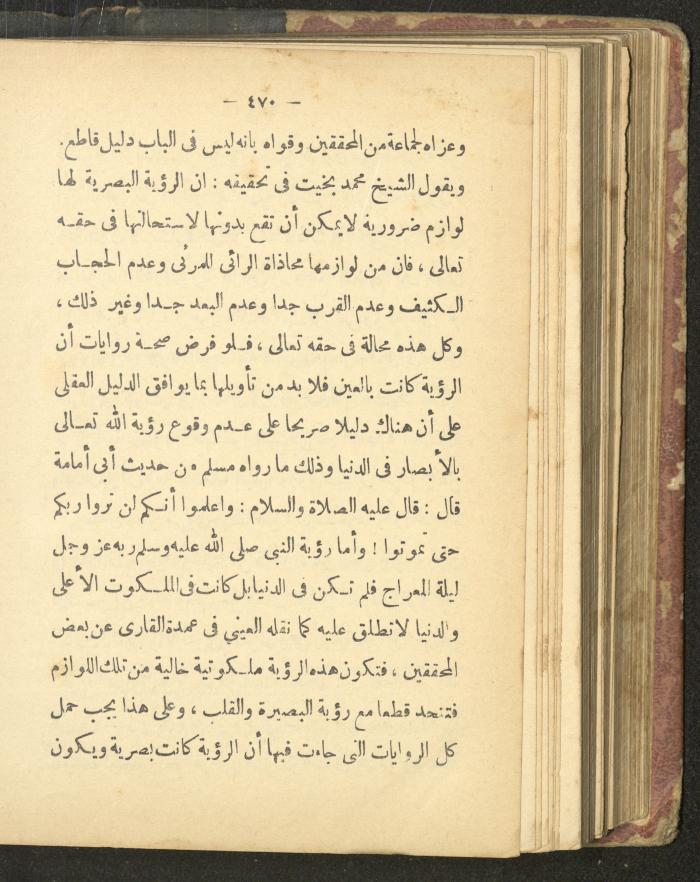 — ٤٧٠ —
وعزاه لجماعة من المحققين وقواه بانه ليس فى الباب دليل قاطع.
ويقول الشيخ محمد بخيت فى تحقيقه : ان الرؤية البصرية لها
لوازم ضرورية لايمكن أن تقع بدونها لاستحالتها فى حقه
تعالى ، فان من لوازمها محاذاة الرائى للمرئى وعدم الحجاب
الكثيف وعدم القرب جدا وعدم البعد جدا وغير ذلك ،
وكل هذه محالة فى حقه تعالى ، فلو فرض صحة روايات أن
الرؤية كانت بالعين فلا بد من تأويلها بما يوافق الدليل العقلى
على أن هناك دليلا صريحا على عدم وقوع رؤية الله تعالى
بالأبصار فى الدنيا وذلك ما رواه مسلم من حديث أبى أمامة
قال : قال عليه الصلاة والسلام : واعلموا أنكم لن تروا ربكم
حتى تموتوا ! وأما رؤية النبى صلى الله عليه وسلم ربه عز وجل
ليلة المعراج فلم تكن فى الدنيا بل كانت فى الملكوت الأعلى
والدنيا لا تطلق عليه كما نقله العينى فى عمدة القارى عن بعض
المحققين ، فتكون هذه الرؤية ملكوتية خالية من تلك اللوازم
فتتحد قطعا مع رؤية البصيرة والقلب ، وعلى هذا يجب حمل
كل الروايات التى جاءت فيها أن الرؤية كانت بصرية ويكون